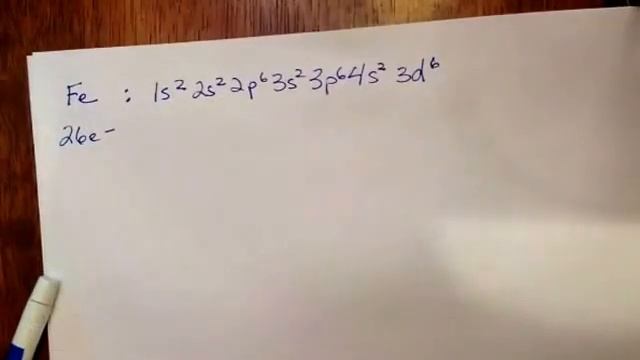 Fe : 1s² 2s² 2p⁶ 3s² 3p⁶ 4s² 3d⁶
26e⁻